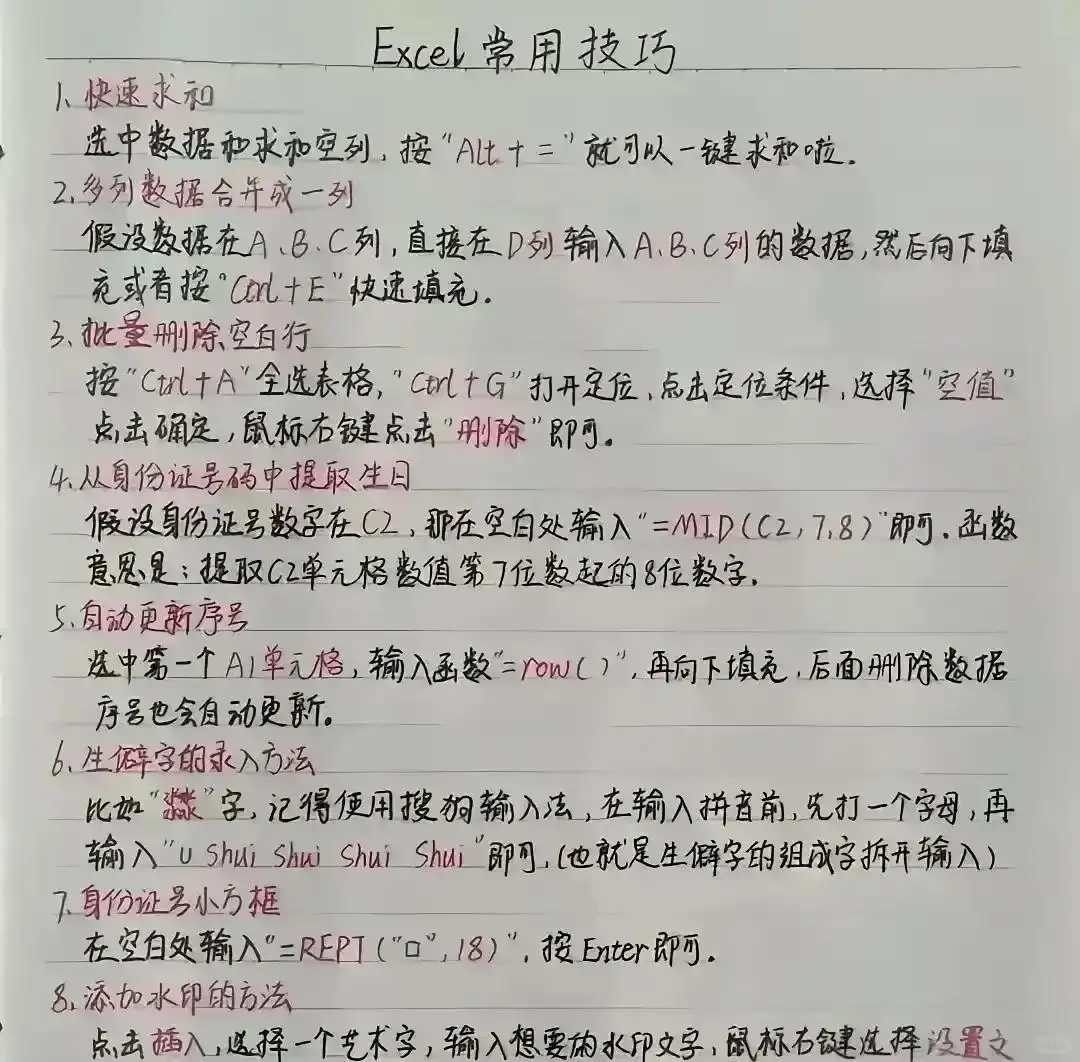 Excel常用技巧
1、快速求和
选中数据和求和空列，按“Alt+=”就可以一键求和啦.
2、多列数据合并成一列
假设数据在A、B、C列，直接在D列输入A、B、C列的数据，然后向下填
充或者按“Ctrl+E”快速填充.
3、批量删除空白行
按“Ctrl+A”全选表格，“Ctrl+G”打开定位、点击定位条件，选择“空值”
点击确定，鼠标右键点击“删除”即可。
4、从身份证号码中提取生日
假设身份证号数字在C2，那在空白处输入“=MID(C2,7,8)”即可.函数
意思是：提取C2单元格数值第7位数起的8位数字.
5、自动更新序号
选中第一个A1单元格，输入函数“=row()”，再向下填充，后面删除数据
序号也会自动更新。
6、生僻字的录入方法
比如“㵘”字，记得使用搜狗输入法，在输入拼音前，先打一个字母，再
输入“U Shui Shui Shui Shui”即可，(也就是生僻字的组成字拆开输入)
7、身份证号小方框
在空白处输入“=REPT(“口”,18)”，按Enter即可.
8、添加水印的方法
点击插入，选择一个艺术字，输入想要的水印文字，鼠标右键选择设置文